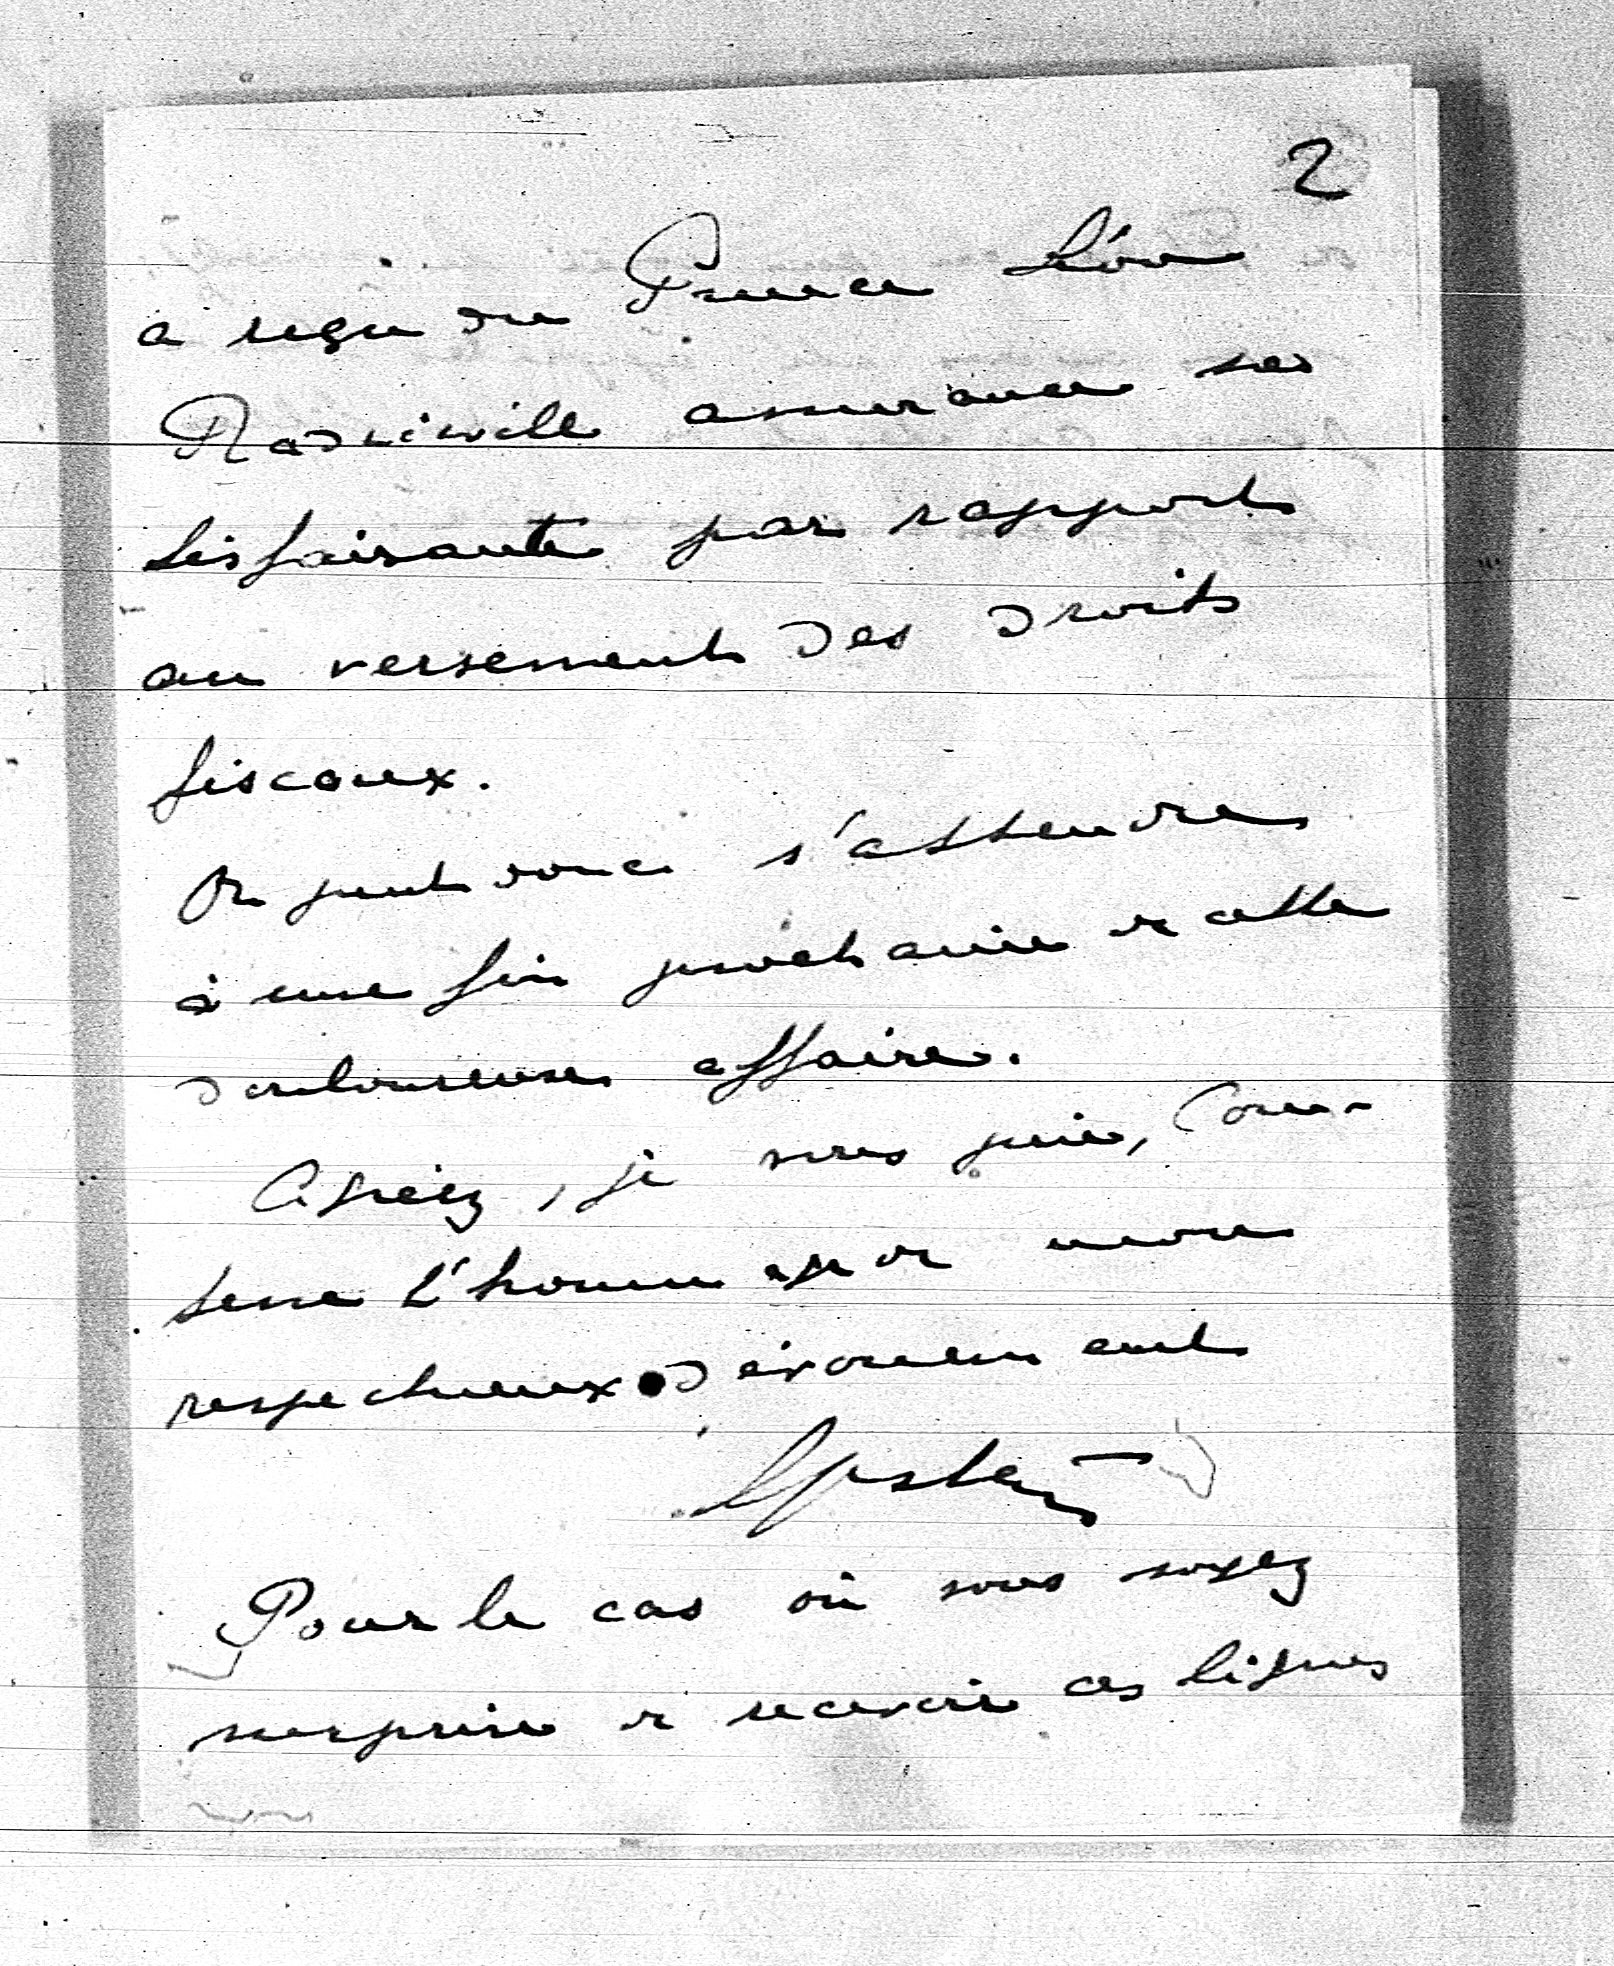 2
a reçu du Prince Léon
Radziwill assurance sa
tisfaisante par rapport
au versement des droits
fiscaux.
On peut donc s'attendre
à une fin prochaine de cette
douloureuse affaire.
Agréez, je vous prie, Com-
tesse l'hommage de mon
respectueux dévouement
Epstein
Pour le cas où vous soyez
surprise de recevoir ces lignes